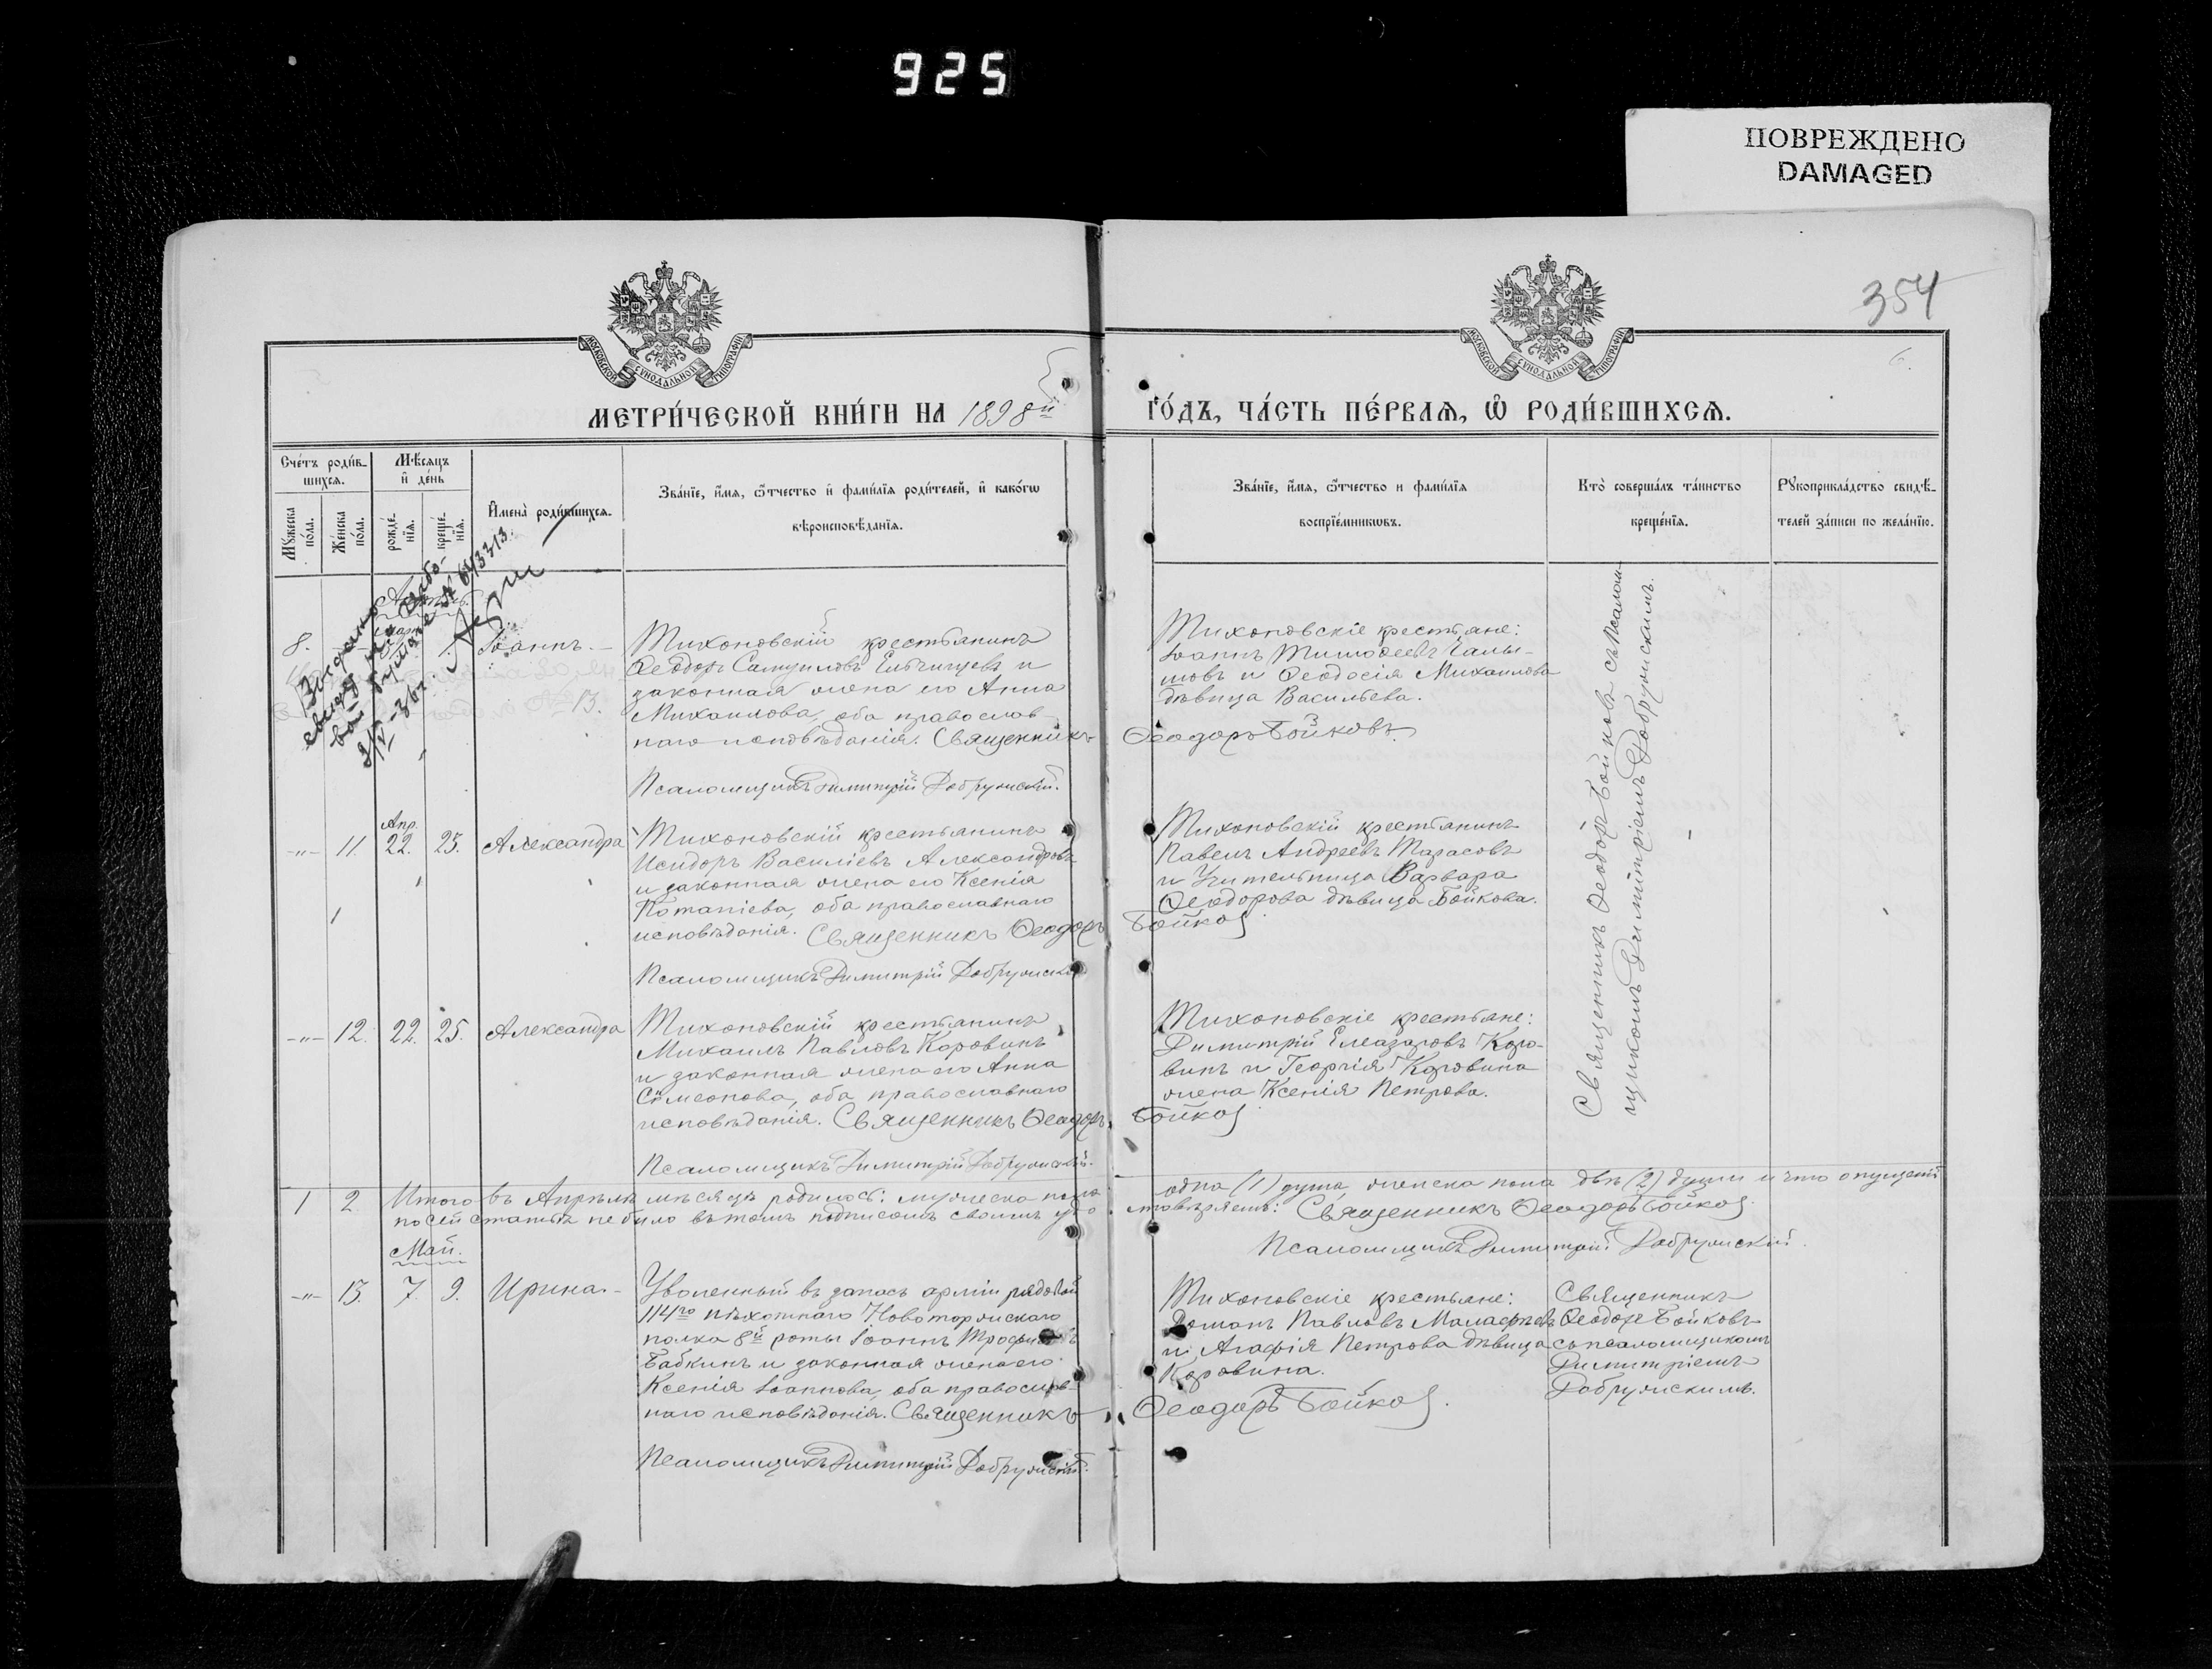 925
ПОВРЕЖДЕНО
DAMAGED
354
6.
МОСКОВСКОЙ СѴНОДАЛЬНОЙ ТИПОГРАФІИ
МОСКОВСКОЙ СѴНОДАЛЬНОЙ ТИПОГРАФІИ
МЕТРИ́ЧЕСКОЙ КНИ́ГИ НА 1898й
ГО́ДЪ, ЧА́СТЬ ПЕ́РВАЯ, Ѡ҆ РОДИ́ВШИХСЯ.
Сче́тъ роди́в-
шихся.
Мꙋ́жеска по́ла.
Же́нска по́ла.
Мѣ́сяцъ
и҆ де́нь
рожде́-
нїя.
креще́-
нїя.
И҆мена̀ роди́вшихся.
Зва́нїе, и҆́мя, ѻ҆́тчество и҆ фами́лїя роди́телей, и҆ како́гѡ
вѣроисповѣ́данїя.
Зва́нїе, и҆́мя, ѻ҆́тчество и фами́лїя
воспрїе́мникѡвъ.
Кто̀ соверша́лъ та́инство
креще́нїя.
Рꙋкоприкла́дство свидѣ́-
телей за́писи по жела́нїю.
8.
1.
Іоаннъ.
Тихоновскій крестьянинъ
Ѳеодоръ Самуиловъ и
законная жена его Анна
Михаилова, оба православ-
наго исповѣданія. Священникъ
Псаломщикъ Димитрій Добружскій.
Тихоновскіе крестьяне:
Іоаннъ Тимоѳеевъ
и Ѳеодосія Михаилова
дѣвица Васильева.
Ѳеодоръ Бойковъ.
Священникъ Ѳеодоръ Бойковъ съ псалом-
щикомъ Димитріемъ Добружскимъ.
-"- 11. Апр. 22. 25. Александра
Тихоновскій крестьянинъ
Исидоръ Василіевъ Александровъ
и законная жена его Ксенія
Потапіева, оба православнаго
исповѣданія. Священникъ Ѳеодоръ
Псаломщикъ Димитрій Добружскій
Тихоновскій крестьянинъ
Павелъ Андреевъ Тарасовъ
и Учительница Варвара
Ѳеодорова дѣвица Бойкова.
Бойковъ
-"- 12. 22. 25. Александра
Тихоновскій крестьянинъ
Михаилъ Павловъ Коровинъ
и законная жена его Анна
Сѷмеонова, оба православнаго
исповѣданія. Священникъ Ѳеодоръ
Псаломщикъ Димитрій Добружскій.
Тихоновскіе крестьяне:
Димитрій Елеазаровъ Коро-
винъ и Георгія Коровина
жена Ксенія Петрова.
Бойковъ
1 2 Итого въ Апрѣлѣ мѣсяцѣ родилось: мужеска пола одна (1) душа, женска пола двѣ (2) души и что опущеній
по сей статьѣ не было въ томъ подписомъ своимъ удостовѣряемъ: Священникъ Ѳеодоръ Бойковъ
Псаломщикъ Димитрій Добружскій.
Май.
-"- 13. 7. 9. Ирина.
Уволенный въ запасъ арміи рядовой
114го пѣхотнаго Новоторжскаго
полка 8й роты Іоаннъ
Бабкинъ и законная жена его
Ксенія Іоаннова, оба православ-
наго исповѣданія. Священникъ
Псаломщикъ Димитрій Добружскій.
Тихоновскіе крестьяне:
Романъ Павловъ
и Агафія Петрова дѣвица
Коровина.
Ѳеодоръ Бойковъ.
Священникъ
Ѳеодоръ Бойковъ
съ псаломщикомъ
Димитріемъ
Добружскимъ.